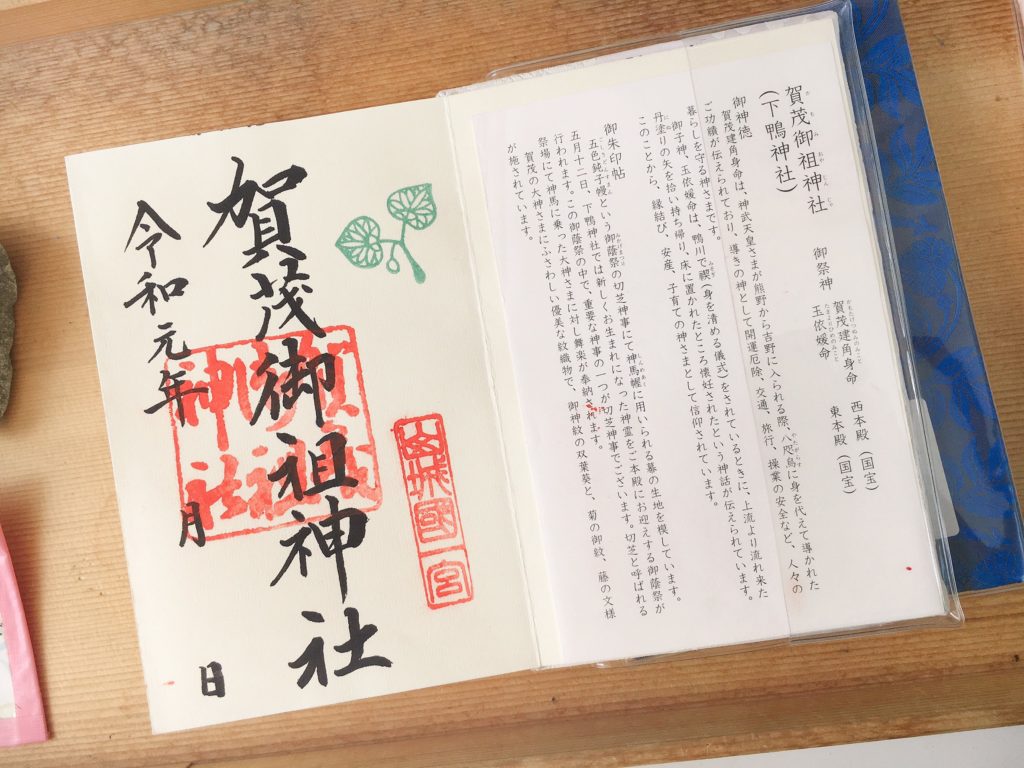 賀茂御祖神社
(下鴨神社)
御祭神 賀茂建角身命 西本殿(国宝)
玉依媛命 東本殿(国宝)
御神徳
賀茂建角身命は、神武天皇さまが熊野から吉野に入られる際、八咫烏に身を代えて導かれた
ご功績が伝えられており、導きの神として開運厄除、交通、旅行、操業の安全など、人々の
暮らしを守る神さまです。
御子神、玉依媛命は、鴨川で禊(身を清める儀式)をされているときに、上流より流れ来た
丹塗りの矢を拾い持ち帰り、床に置かれたところ懐妊されたという神話が伝えられています。
このことから、縁結び、安産、子育ての神さまとして信仰されています。
御朱印帖
五色鈍子幄という御蔭祭の切芝神事にて神馬幄に用いられる幕の生地を模しています。
五月十二日、下鴨神社では新しくお生まれになった神霊をご本殿にお迎えする御蔭祭が
行われます。この御蔭祭の中で、重要な神事の一つが切芝神事でございます。切芝と呼ばれる
祭場にて神馬に乗った大神さまに対し舞楽が奉納されます。
賀茂の大神さまにふさわしい優美な紋織物で、御神紋の双葉葵と、菊の御紋、藤の文様
が施されています。
山城國一宮
賀茂御祖神社
令和元年 月 日